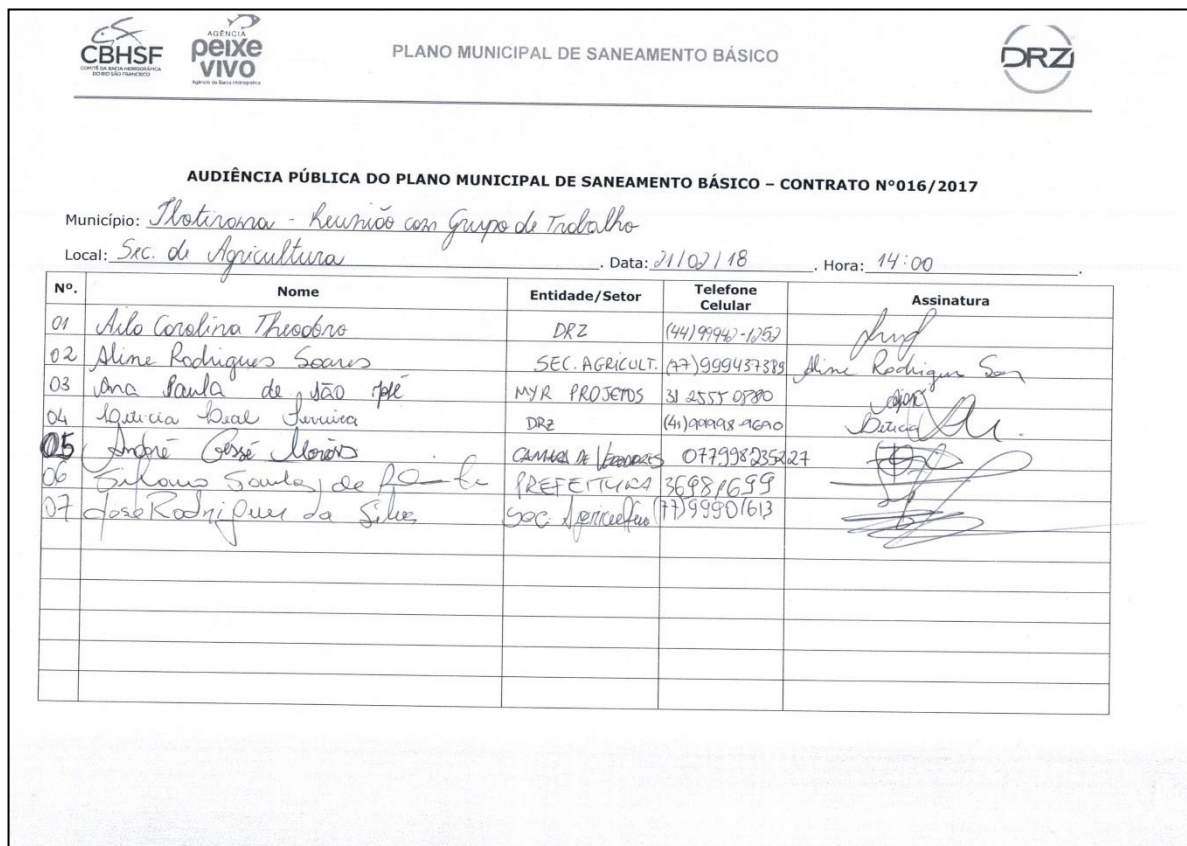 CBHSF
COMITÊ DA BACIA HIDROGRÁFICA
DO RIO SÃO FRANCISCO
AGÊNCIA
peixe
vivo
Agência de Bacia Hidrográfica
PLANO MUNICIPAL DE SANEAMENTO BÁSICO
DRZ
AUDIÊNCIA PÚBLICA DO PLANO MUNICIPAL DE SANEAMENTO BÁSICO – CONTRATO Nº016/2017
Município: Ibotirama - Reunião com Grupo de Trabalho
Local: Sec. de Agricultura. Data: 21/02/18. Hora: 14:00.
Nº. Nome Entidade/Setor Telefone Celular Assinatura
01 Carolina Theodoro DRZ
02 Aline Rodrigues Soares SEC. AGRICULT. (77)999437389 Aline Rodrigues
03 Ana Paula de São José MYR PROJETOS 31 2555 0880
04 Letícia Leal Ferreira DRZ (41)99998-9690 Letícia
05 André Gessé CAMARA DE VEREADORES 077998235227
06 de PREFEITURA 36981699
07 José Rodrigues da Silva Sec. (77)99901613